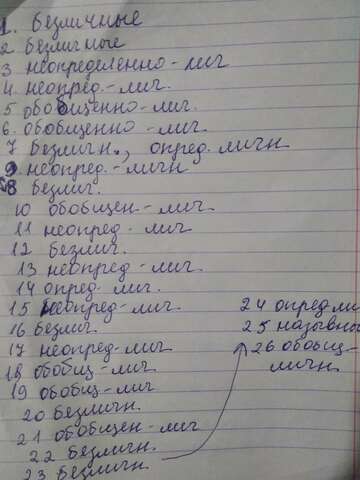 1. безличные
2 безличные
3 неопределенно-лич
4 неопред.-лич.
5 обобщенно-лич.
6. обобщенно-лич.
7 безличн., опред. личн
9 неопред.-личн
8 безлич.
10 обобщен-лич.
11 неопред-лич.
12 безлич.
13 неопред-лич.
14 опред. лич.
15 неопред-лич.
16 безлич.
17 неопред-лич
18 обобщ-лич.
19 обобщ-лич
20 безличн.
21 обобщен-лич
22 безличн.
23 безличн.
24 опред ли
25 назывно
26 обобщ-
личн.